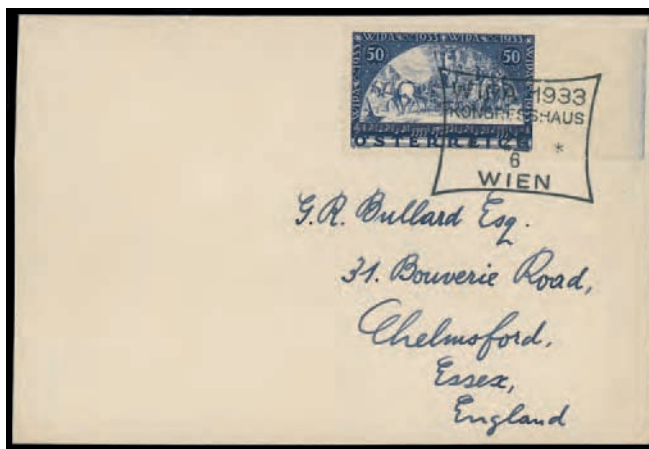 WIPA 1933 WIPA 1933
50 50
ÖSTERREICH
WIPA 1933
KONGRESSHAUS
*
6
WIEN
G. R. Bullard Esq.
31. Bouverie Road,
Chelmsford,
Essex,
England